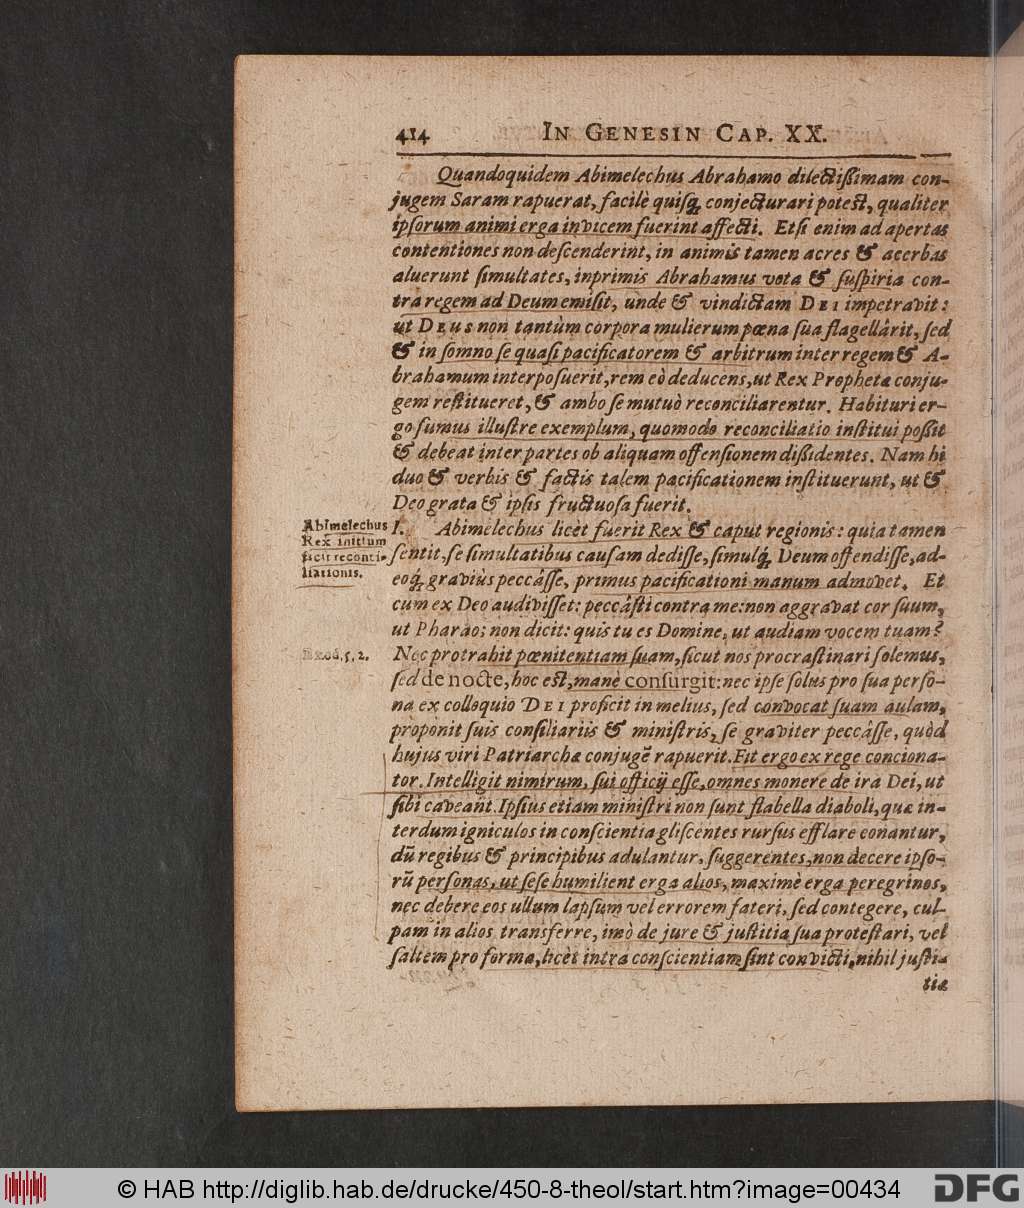 414 IN GENESIN CAP. XX.
Quandoquidem Abimelechus Abrahamo dilectißimam con-
jugem Saram rapuerat, facilè quisq; conjecturari potest, qualiter
ipſorum animi erga invicem fuerint affecti. Etſi enim ad apertas
contentiones non deſcenderint, in animis tamen acres & acerbas
aluerunt ſimultates, inprimis Abrahamus vota & ſuſpiria con-
tra regem ad Deum emiſit, unde & vindictam DEI impetravit:
ut DEUS non tantùm corpora mulierum pœna ſua flagellârit, ſed
& in ſomno ſe quaſi pacificatorem & arbitrum inter regem & A-
brahamum interpoſuerit, rem eò deducens, ut Rex Prophetæ conju-
gem reſtitueret, & ambo ſe mutuò reconciliarentur. Habituri er-
go ſumus illuſtre exemplum, quomodo reconciliatio inſtitui poßit
& debeat inter partes ob aliquam offenſionem dißidentes. Nam hi
duo & verbis & factis talem pacificationem inſtituerunt, ut &
Deo grata & ipſis fructuoſa fuerit.
Abimelechus
Rex initium
facit reconci-
liationis.
I. Abimelechus licèt fuerit Rex & caput regionis: quia tamen
ſentit, ſe ſimultatibus cauſam dediſſe, ſimulq; Deum offendiſſe, ad-
eoq; graviùs peccâſſe, primus pacificationi manum admovet. Et
cum ex Deo audiviſſet: peccâſti contra me: non aggravat cor ſuum,
ut Pharao; non dicit: quis tu es Domine, ut audiam vocem tuam?
Exod. 5, 2.
Nec protrahit pœnitentiam ſuam, ſicut nos procraſtinari ſolemus,
ſed de nocte, hoc eſt, manè conſurgit: nec ipſe ſolus pro ſua perſo-
na ex colloquio DEI proficit in melius, ſed convocat ſuam aulam,
proponit ſuis conſiliariis & miniſtris, ſe graviter peccâſſe, quòd
hujus viri Patriarchæ conjugẽ rapuerit. Fit ergo ex rege conciona-
tor. Intelligit nimirum, ſui officij eſſe, omnes monere de ira Dei, ut
ſibi caveant. Ipſius etiam miniſtri non ſunt flabella diaboli, quæ in-
terdum igniculos in conſcientia gliſcentes rurſus efflare conantur,
dũ regibus & principibus adulantur, ſuggerentes, non decere ipſo-
rũ perſonas, ut ſeſe humilient erga alios, maximè erga peregrinos,
nec debere eos ullum lapſum vel errorem fateri, ſed contegere, cul-
pam in alios transferre, imò de jure & juſtitia ſua proteſtari, vel
ſaltem pro forma, licèt intra conſcientiam ſint convicti, nihil juſti-
tiæ
© HAB http://diglib.hab.de/drucke/450-8-theol/start.htm?image=00434
DFG